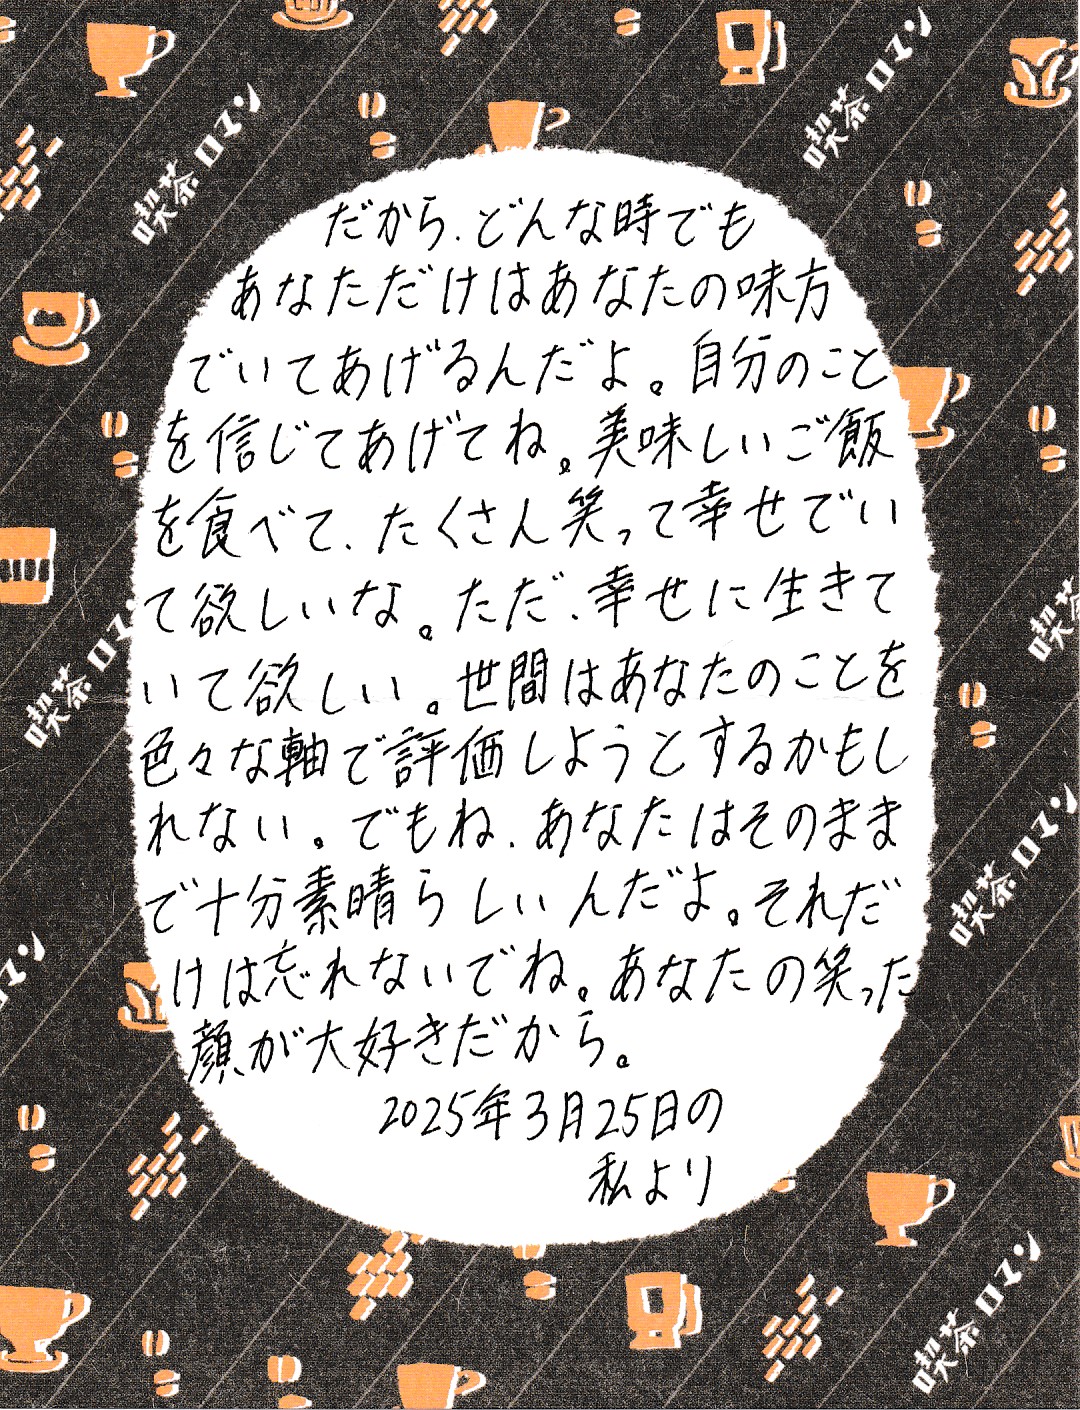 喫茶ロマン
喫茶ロマン
だから、どんな時でも
あなただけはあなたの味方
でいてあげるんだよ。自分のこと
を信じてあげてね。美味しいご飯
を食べて、たくさん笑って幸せでい
て欲しいな。ただ、幸せに生きて
いて欲しい。世間はあなたのことを
色々な軸で評価しようとするかもし
れない。でもね、あなたはそのまま
で十分素晴らしいんだよ。それだ
けは忘れないでね。あなたの笑った
顔が大好きだから。
2025年3月25日の
私より
喫茶ロマン
喫茶
喫茶ロマン
マン
喫茶ロマン